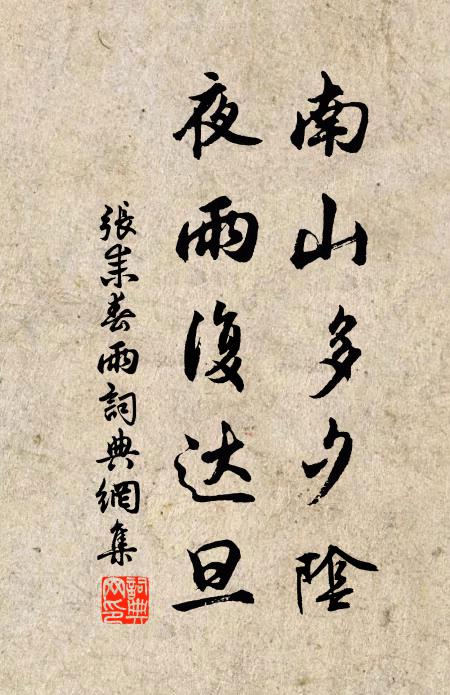 南山多夕陰
夜雨復达旦
張耒春雨詞典網集
詞典
网印